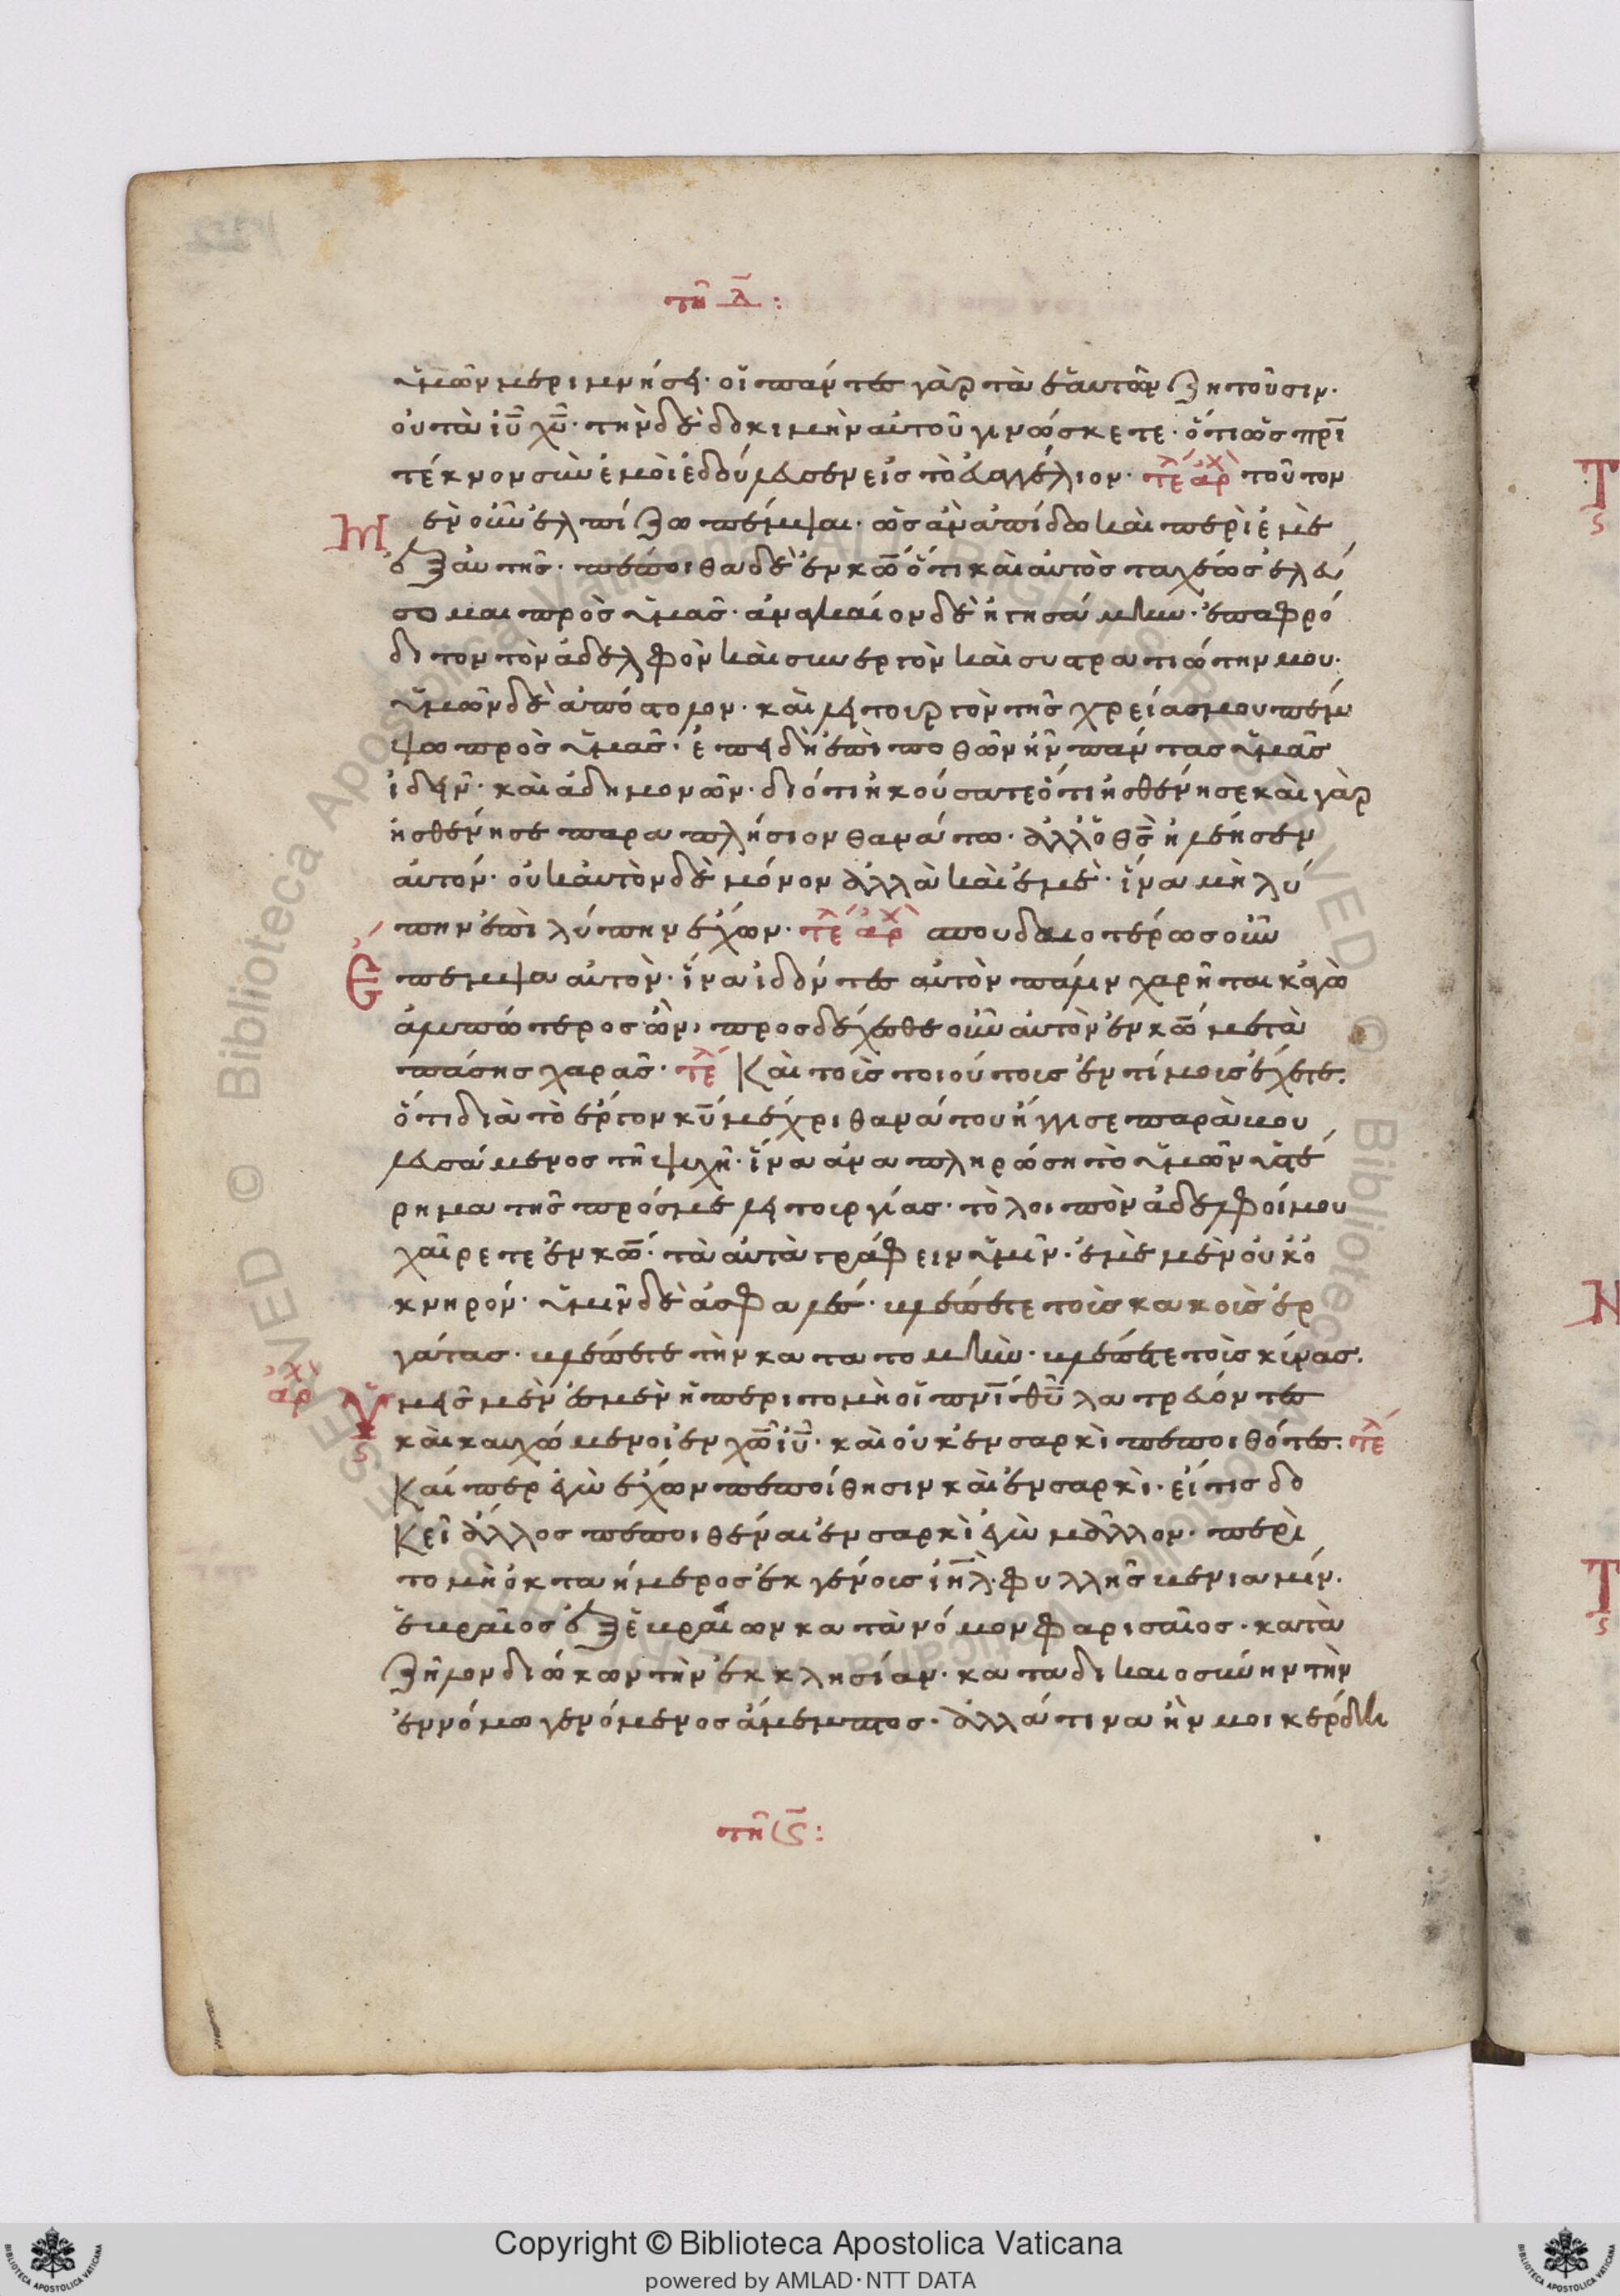 τῆ δ̅:
ὑμῶν μεριμνήσει· οἱ πάντες γὰρ τὰ ἑαυτῶν ζητοῦσιν·
οὐ τὰ ἰῦ χῦ· τὴν δὲ δοκιμὴν αὐτοῦ γινώσκετε· ὅτι ὡς πρῒ
τέκνον σὺν ἐμοὶ ἐδούλευσεν εἰς τὸ εὐαγγέλιον· τέλ ἀρχ τοῦτον
Μὲν οὖν ἐλπίζω πέμψαι· ὡς ἂν ἀπίδω καὶ περὶ ἐμὲ
ἐξ αὐτῆς· πέποιθα δὲ ἐν κω ὅτι καὶ αὐτὸς ταχέως ἐλεύ
σομαι πρὸς ὑμᾶς· ἀναγκαίον δὲ ἡτησάμην· ἐπαφρό
διτον τὸν ἀδελφὸν καὶ συνεργὸν καὶ συστρατιώτην μου·
ὑμῶν δὲ ἀπόστολον· καὶ λειτουργὸν τῆς χρείας μου πέμ
ψω πρὸς ὑμᾶς· ἐπειδὴ ἐπιποθῶν ἦν πάντας ὑμᾶς
ἰδεῖν· καὶ ἀδημονῶν· διότι ἠκούσατε ὅτι ἠσθένησε καὶ γὰρ
ἠσθένησε παραπλήσιον θανάτω· ἀλλ' ὁ θς ἠλέησεν
αὐτόν· οὐκ αὐτὸν δὲ μόνον ἀλλὰ καὶ ἐμὲ· ἵνα μὴ λύ
πην ἐπὶ λύπην ἔχων· τέλ ἀρχ σπουδαιοτέρως οὖν
Ἔπεμψα αὐτὸν· ἵνα ἰδόντες αὐτὸν πάλιν χαρῆται κἀγὼ
ἀλυπώτερος ὢν, προσδέχεσθε οὖν αὐτὸν ἐν κω μετὰ
πάσης χαρᾶς· τέλ Καὶ τοῖς τοιούτοις ἐντίμοις ἔχετε.
ὅτι διὰ τὸ ἔργον κῦ μέχρι θανάτου ἤγγισε παρὰ βου
λευσάμενος τῆ ψυχῆ· ἵνα ἀναπληρώση τὸ ὑμῶν ὑστέ
ρημα τῆς πρός με λειτουργίας· τὸ λοιπὸν ἀδελφοί μου
χαίρετε ἐν κω· τὰ αὐτὰ γράφειν ὑμῖν· ἐμὲ μὲν οὐκ ὀ
κνηρόν· ὑμῖν δὲ ἀσφαλές· βλέπετε τοῖς κακοῖς ἐρ
γάτας· βλέπετε τὴν κατατομὴν· βλέπετε τοῖς κύνας.
ἀρχ Ὑμεῖς μὲν ἐσμὲν ἡ περιτομὴ οἱ πνῒ θῦ λατρεύοντες
καὶ καυχώμενοι ἐν χω ἰῦ· καὶ οὐκ ἐν σαρκὶ πεποιθότες. τέλ
Καίπερ ἐγὼ ἔχων πεποίθησιν καὶ ἐν σαρκὶ· εἴ τις δο
Κεῖ ἄλλος πεποιθέναι ἐν σαρκὶ ἐγὼ μᾶλλον· περὶ
τομὴ ὀκταήμερος ἐκ γένοις ἰηλ· φυλλῆς βενιαμίν.
ἑβραῖος ἐξ ἑβραίων κατὰ νόμον φαρισαῖος· κατὰ
ζῆλον διώκων τὴν ἐκκλησίαν· κατὰ δικαιοσύνην τὴν
ἐν νόμω γενόμενος ἄμεμπτος· ἀλλά τινα ἦν μοι κέρδη
τῆ ς̅:
Copyright © Biblioteca Apostolica Vaticana
powered by AMLAD·NTT DATA